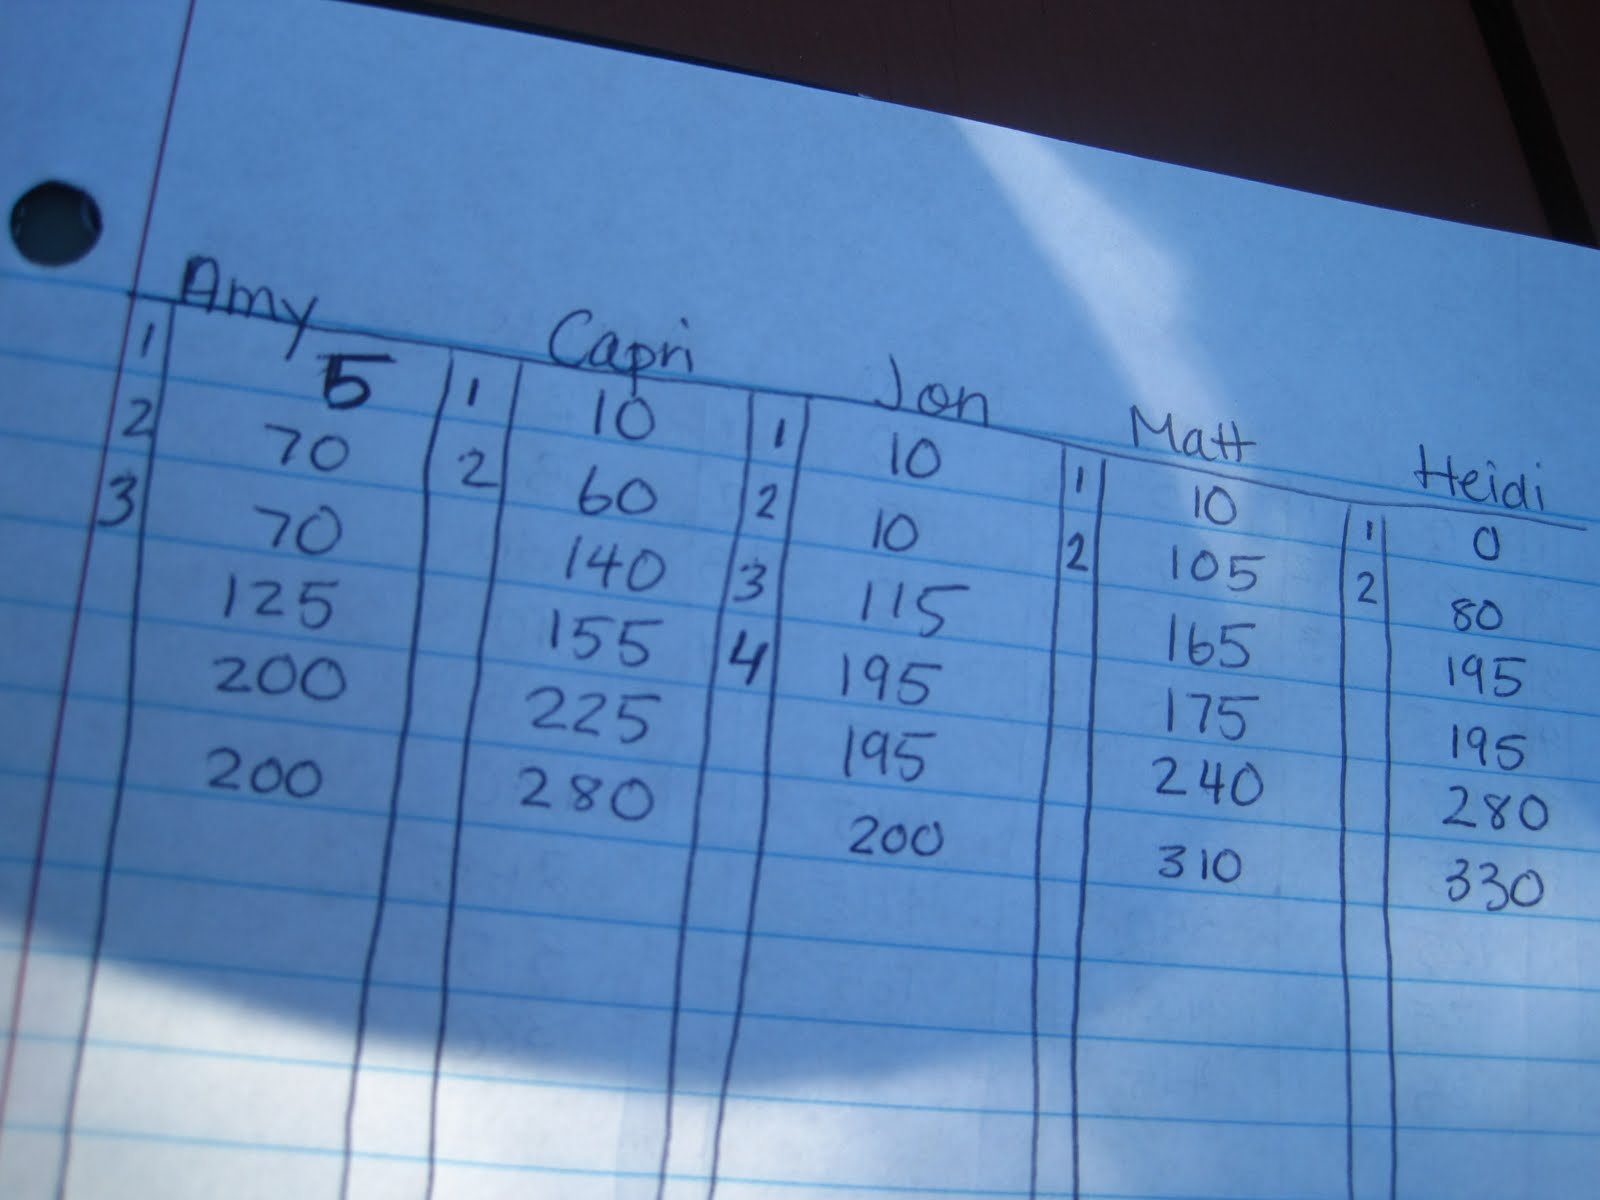 Amy Capri Jon Matt Heidi
1 5 1 10 1 10 1 10 1 0
2 70 2 60 2 10 2 105 2 80
3 70 140 3 115 165 195
125 155 4 195 175 195
200 225 195 240 280
200 280 200 310 330